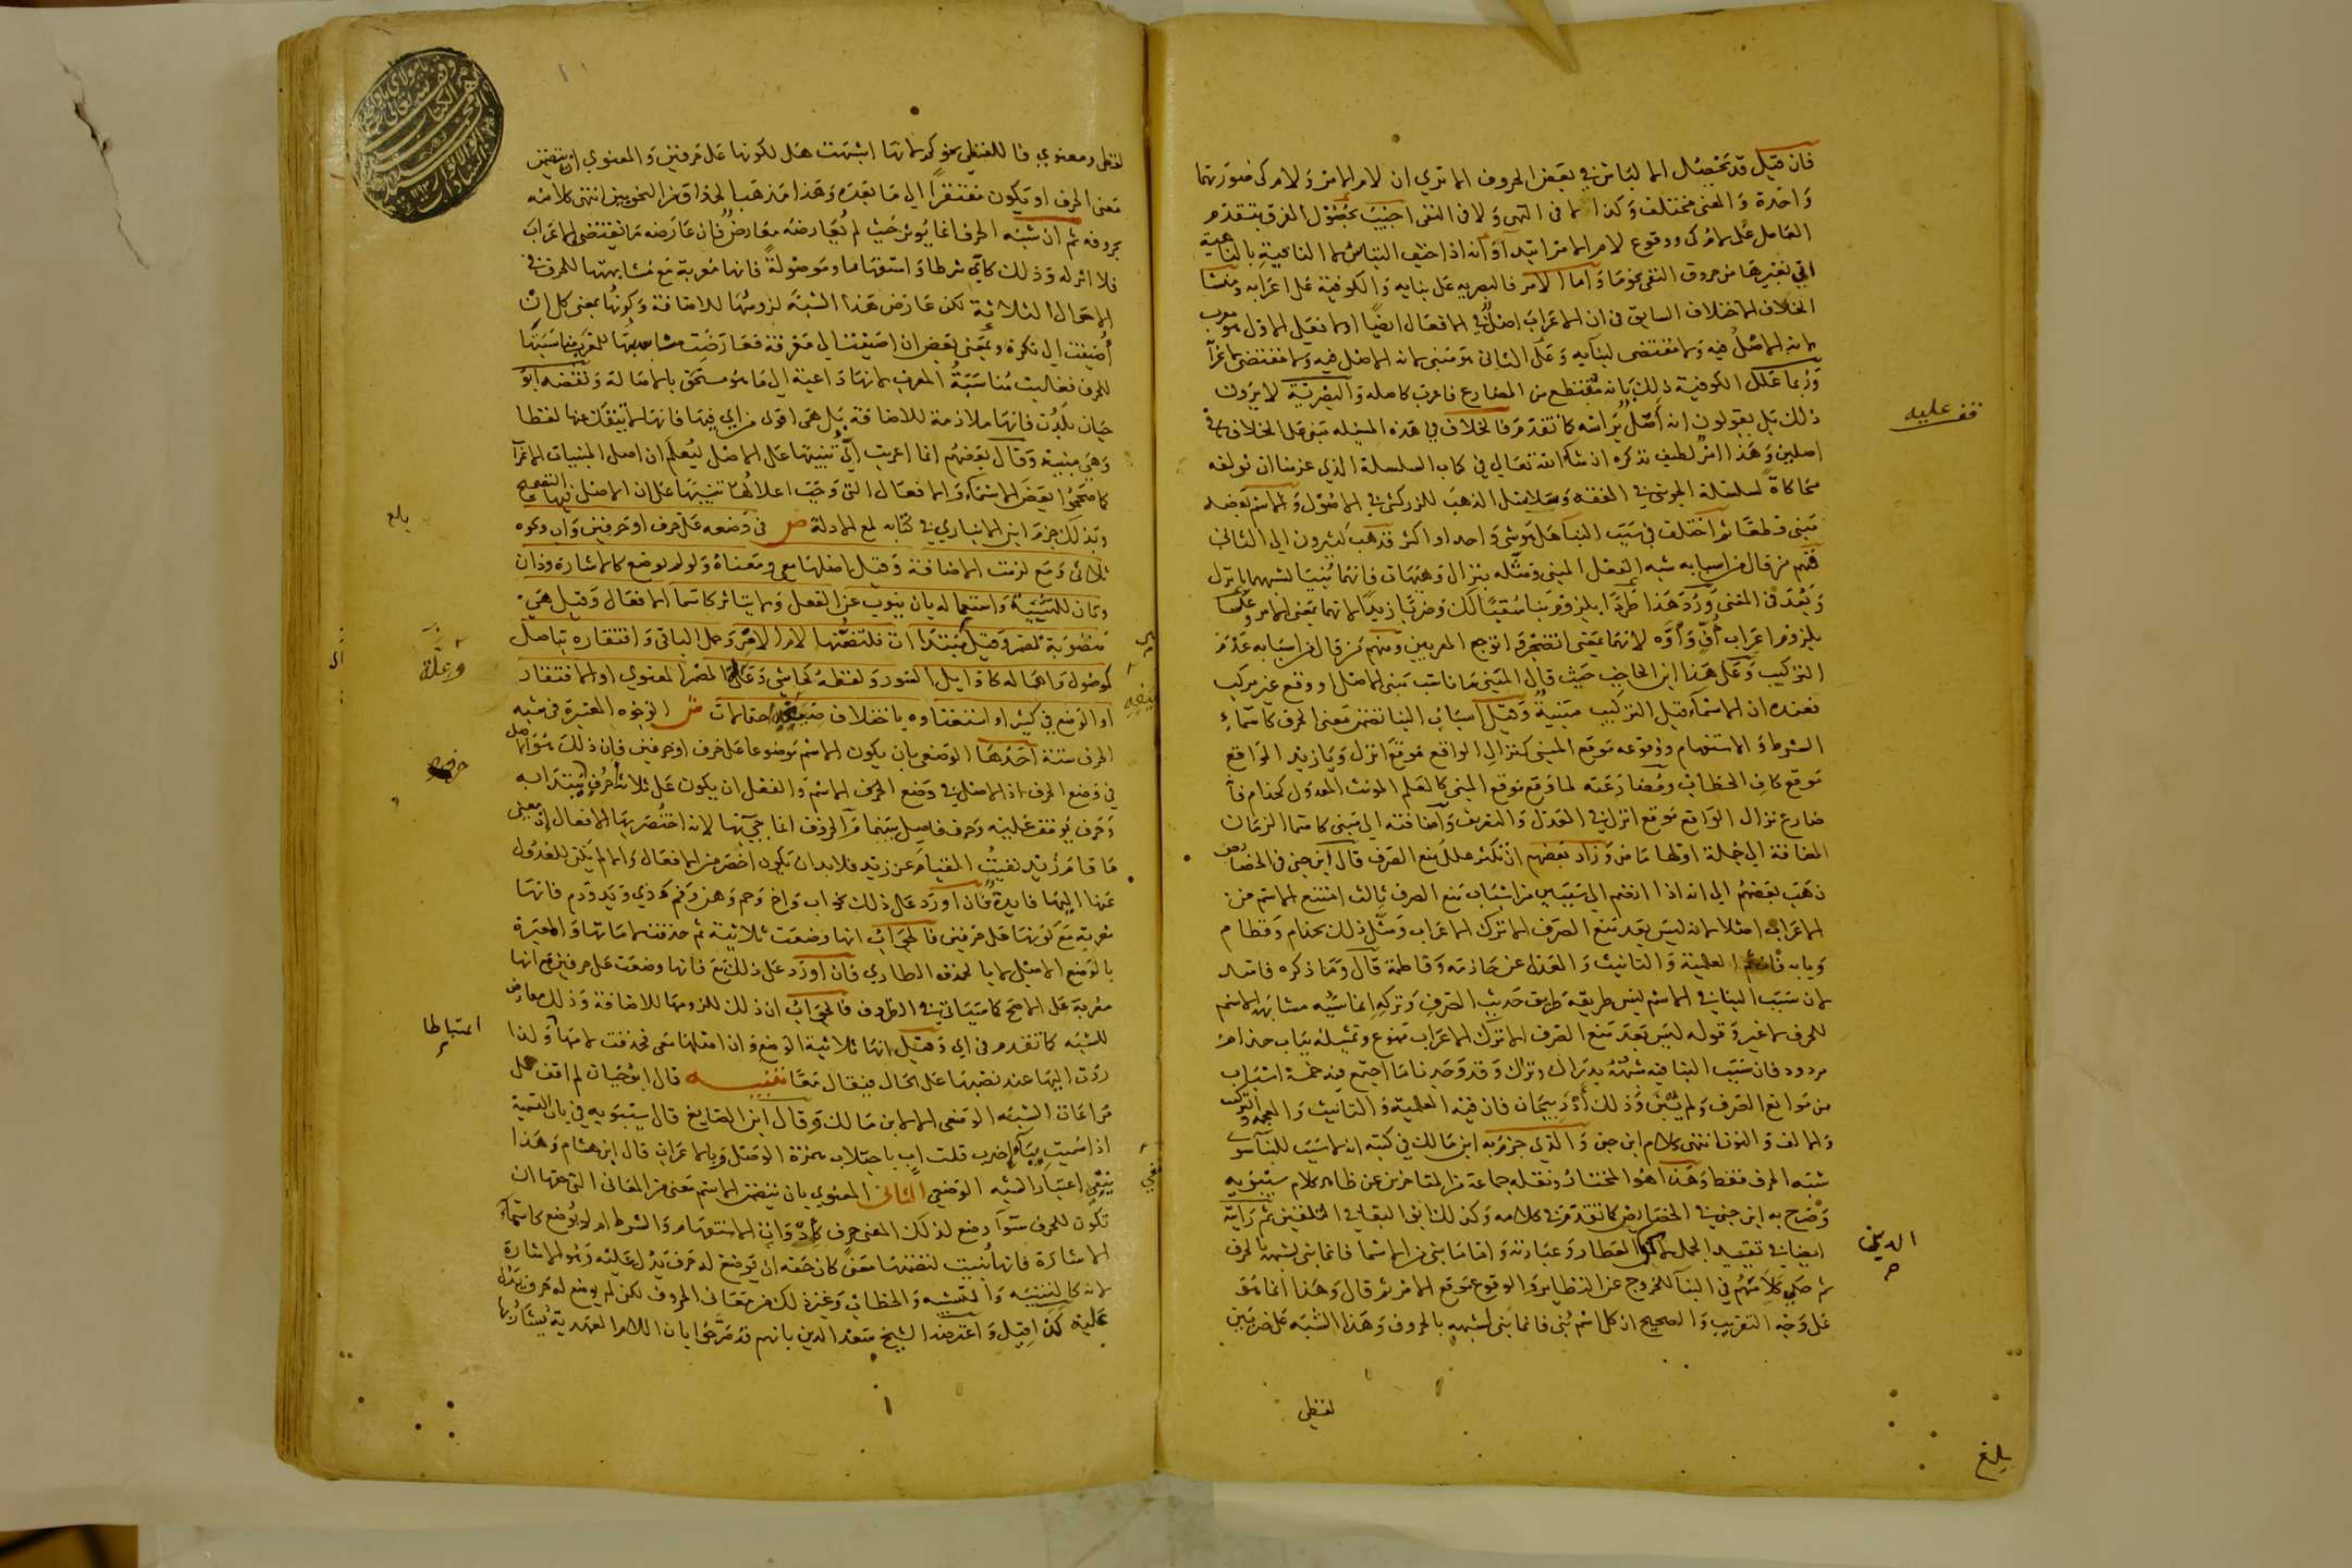 فان قيل قد يحصل الالتباس في بعض الحروف الا تري ان لام الامر ولام كي صورتهما
واحدة والمعنى مختلف وكذا لا في النهى ولا في النفى اجيب بحصول الفرق بتقدم
العامل على لام كى ووقوع لام الامر ابتداء او انه اذا خيف التباس لا الناهية بالنافية
اتي بغيرها من حروف النفى واما الامر فالبصريه على بنايه والكوفية على اعرابه ومنشا
الخلاف الاختلاف السابق في ان الاعراب اصل في الافعال ايضا اولا فعلى الاول هو معرب
لانه الاصل فيه ولا مقتضى لبنايه وعلى الثانى هو مبنى لانه الاصل فيه ولا مقتضى لاعرابه
وربما علل الكوفية ذلك بانه مقتطع من المضارع فاعرب كاصله والبصرية لا يرون
ذلك بل يقولون انه اصل براسه كما تقدم فالخلاف في هذه المسئله مبنى على الخلاف في
اصلين وهذا امر لطيف نذكره ان شاء الله تعالي في كتاب السلسلة الذي عزمنا ان نولفه
محاكاة لسلسلة الجوينى في الفقه وسلاسل الذهب للزركشى في الاصول والاسم بعضه
مبنى قطعا ثم اختلف في سبب البنا هل هو شى واحد او اكثر فذهب كثيرون الى الثانى
فمنهم من قال من اسبابه شبه الفعل المبنى ومثله بنزال وهيهات فانهما بنيا لشبههما بانزل
وبعد في المعنى ورد هذا طردا بلزوم بنا سقيا لك وضربا زيدا لانهما بمعنى الامر وعكسا
بلزوم اعراب اف واوه لانهما بمعنى اتضجر واتوجع المعربين ومنهم من قال من اسبابه عدم
التركيب وعلى هذا ابن الحاجب حيث قال المبنى ما ناسب مبنى الاصل او وقع غير مركب
فعنده ان الاسماء قبل التركيب مبنية وقيل اسباب البنا تضمن معنى الحرف كاسماء
الشرط والاستفهام ووقوعه موقع المبنى كنزال الواقع موقع انزل ويا زيد الواقع
موقع كاف الخطاب ومضارعته لما وقع موقع المبنى كالعلم المونث المعدول كحذام فا
ضارع نزال الواقع موقع انزل في العدل والتعريف واضافته الى مبنى كاسما الزمان
المضافة الى جملة اولها ماض وزاد بعضهم ان تكثر علل منع الصرف قال ابن جنى في الخصايص
ذهب بعضهم الى انه اذا انضم الى سببين من اسباب منع الصرف ثالث امتنع الاسم من
الاعراب اصلا لانه ليس بعد منع الصرف الا ترك الاعراب ومثل ذلك بحذام وقطام
وبابه العلمية والتانيث والعدل عن حاذمة وقاطمة قال وما ذكره فاسد
لان سبب البنا في الاسم ليس طريقه طريق حديث الصرف وتركه انما سببه مشابهة الاسم
للحرف لا غير وقوله ليس بعد منع الصرف الا ترك الاعراب ممنوع وتمثيله بباب حذام
مردود فان سبب البنا فيه شبهه بدراك ونزال وقد وجدنا ما اجتمع فيه خمسة اسباب
من موانع الصرف ولم يبن وذلك اذربيجان فان فيه العلمية والتانيث والعجمة والتركيب
والالف والنون انتهى كلام ابن جنى والذي جزم به ابن مالك في كتبه انه لا سبب للبنا سوى
شبه الحرف فقط وهذا هو المختار ونقله جماعة من المتاخرين عن ظاهر كلام سيبويه
وصرح به ابن جنى في الخصايص كما تقدم في كلامه وكذلك ابو البقا في التلقين ثم رايته
ايضا في تقييد الجمل العطار وعبارته واما ما بنى من الاسما فانما بنى لشبهه بالحرف
ثم حكى كلامهم في البنا للخروج عن النظاير والوقوع موقع الامر ثم قال وهذا انما هو
على وجه التقريب والصحيح ان كل اسم بنى فانما بنى لشبهه بالحروف وهذا الشبه على ضربين
لفظي
قف عليه
الدين
بلغ
لفظى ومعنوي فاللفظى نحو كم لانها اشبهت هل لكونها على حرفين والمعنوي ان يتضمن
معنى الحرف او تكون مفتقرا الى ما بعده وهذا مذهب الحذاق من النحويين انتهى كلامه
بحروفه ثم ان شبه الحرف انما يوثر حيث لم يعارضه معارض فان عارضه ما يقتضى الاعراب
فلا اثر له وذلك كاى شرطا واستفهاما وموصولة فانها معربة مع مشابهتها للحرف في
الاحوال الثلاثة لكن عارض هذا الشبه لزومها للاضافة وكونها بمعنى كل ان
اضيفت الى نكرة وبمعنى بعض ان اضيفت الى معرفة فعارضت مناسبتها
للحرف فغلبت مناسبة المعرب لانها داعية الى ما هو مستحق بالاصالة ونقضه ابو
حيان بلدن فانها ملازمة للاضافة بل هى اقوى من اى فيها فانها لا تنفك عنها لفظا
وهى مبنية وقال بعضهم انما اعربت اى تنبيها على الاصل ليعلم ان اصل المبنيات الاعراب
كما صححوا بعض الاسماء والافعال التى وجب اعلالها تنبيها على ان الاصل فيها التصحيح
وبذلك جزم ابن الانباري في كتابه لمع الادلة ص في وضعه على حرف او حرفين وان ونحوه
ثلاثى ومع لزمت الاضافة وقيل اصلها معى ومعناه ولو لم يوضع كالاشارة وذان
وتان للتثنية واستعماله بان ينوب عن الفعل ولا يتاثر كاسما الافعال وقيل هى
منصوبة لمضمر وقيل مبتدا ان قلتضمنها لام الامر وحمل الباقى وافتقاره تباصل
كموصول واهماله كاوايل السور ولفظه كحاشى وعلى المضمر المعنوي او الافتقار
او الوضع في كثير او استغناوه باختلاف صيغه احتمالات ش الوجوه المعتبرة في شبه
الحرف ستة احدها الوضعى بان يكون الاسم موضوعا على حرف او حرفين فان ذلك هو الاصل
في وضع الحرف اذ الاصل في وضع الاسم والفعل ان يكون على ثلاثة احرف يبتدا به
وحرف يوقف عليه وحرف فاصل بينهما والحروف انما جىء بها لانه اختصر بها الافعال اذ معنى
ما قام زيد نفيت القيام عن زيد فلا بد ان تكون اخصر من الافعال والا لم يكن للعدول
عنها اليها فايدة فان اورد على ذلك نحو اب واخ وحم وهن وفم وذي ويد ودم فانها
معربة مع كونها على حرفين فالجواب انها وضعت ثلاثية ثم حذفت لاماتها والمعتبرة
بالوضع الاصلى لا بالحذف الطاري فان اورد على ذلك مع فانها وضعت على حرفين مع انها
معربة على الاصح كما سياتي في الظروف فالجواب ان ذلك للزومها للاضافة وذلك معارض
للشبه كما تقدم في اي وقيل انها ثلاثية الوضع وان اصلها معى فحذفت لامها ولذا
ردت اليها عند نصبها على الحال فيقال معا تنبيه قال ابو حيان لم اقف على
مراعاة الشبه الوضعى الا لابن مالك وقال ابن الصايغ قال سيبويه في باب التسمية
اذا سميت بباء اضرب قلت اب باجتلاب همزة الوصل وبالاعراب قال ابن هشام وهذا
ينفى اعتبار الشبه الوضعى الثانى المعنوي بان يتضمن الاسم معنى من المعانى التى حقها ان
تكون للحرف سوا وضع لذلك المعنى حرف كادوات الاستفهام والشرط ام لم يوضع كاسماء
الاشارة فانها بنيت لتضمنها معنى كان حقه ان يوضع له حرف يدل عليه وهو الاشارة
لانه كالتنبيه والتشبيه والخطاب وغير ذلك من معانى الحروف لكن لم يوضع له حرف يدل
عليه كذا قيل واعترضه الشيخ سعد الدين بانهم قد صرحوا بان اللام العهدية يشار بها
بلغ
وعلة
استنباطا